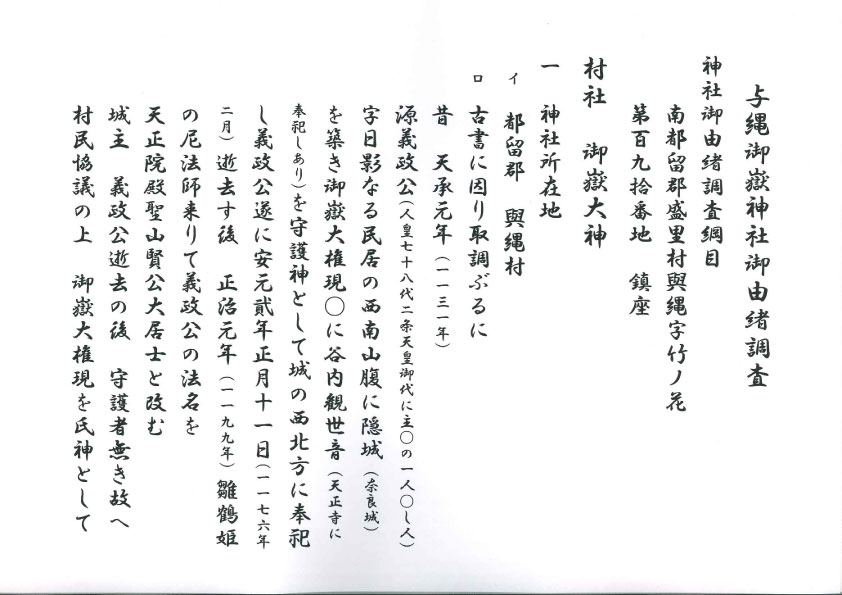 与縄御嶽神社御由緒調査
神社御由緒調査綱目
南都留郡盛里村與縄字竹ノ花
第百九拾番地　鎮座
村社　御嶽大神
一　神社所在地
イ　都留郡　與縄村
ロ　古書に因り取調ぶるに
昔　天承元年（一一三一年）
源義政公（人皇七十八代二条天皇御代に主〇の一人〇し人）
字日影なる民居の西南山腹に隠城（奈良城）
を築き御嶽大権現〇に谷内観世音（天正寺に
奉祀しあり）を守護神として城の西北方に奉祀
し義政公遂に安元貳年正月十一日（一一七六年
二月）逝去す後　正治元年（一一九九年）雛鶴姫
の尼法師来りて義政公の法名を
天正院殿聖山賢公大居士と改む
城主　義政公逝去の後　守護者無き故へ
村民協議の上　御嶽大権現を氏神として